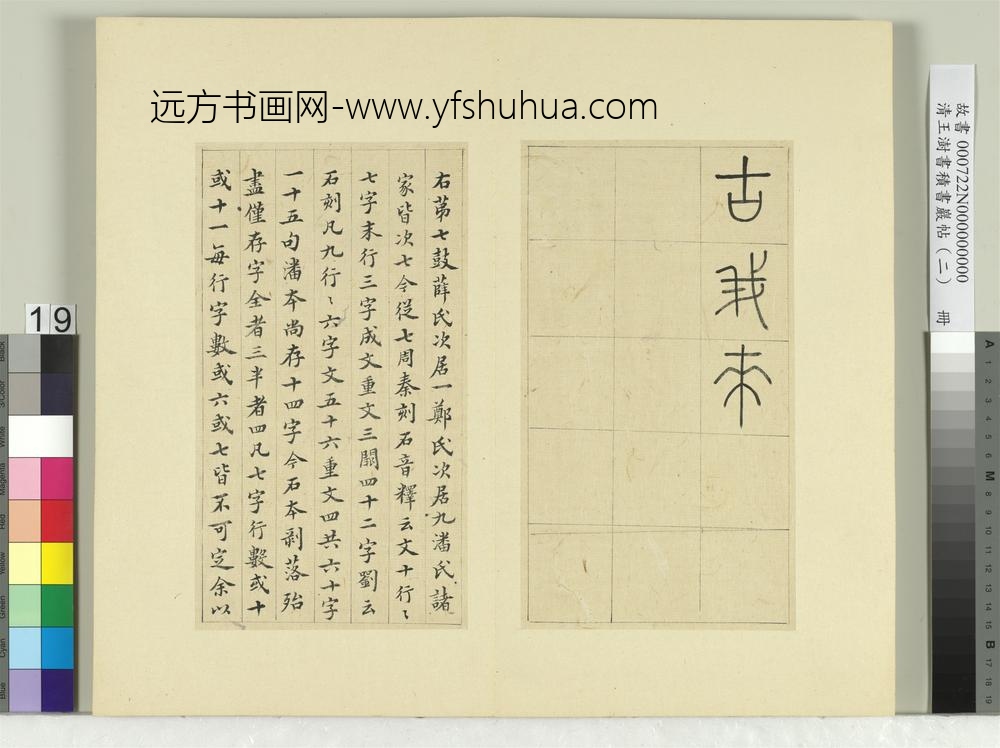 远方书画网-www.yfshuhua.com
故書 000722N000000000
清王澍書積書巖帖（二） 冊
古我來
右苐七鼓薛氏次居一鄭氏次居九潘氏諸
家皆次七今從七周秦刻石音釋云文十行〻
七字末行三字成文重文三闕四十二字劉云
石刻凡九行〻六字文五十六重文四共六十字
一十五句潘本尚存十四字今石本剝落殆
盡僅存字全者三半者四凡七字行數或十
或十一每行字數或六或七皆不可定余以
19
Black
3/Color
White
Magenta
Red
Yellow
Green
Cyan
Blue
A 1 2 3 4 5 6 M 8 9 10 11 12 13 14 15 B 17 18 19